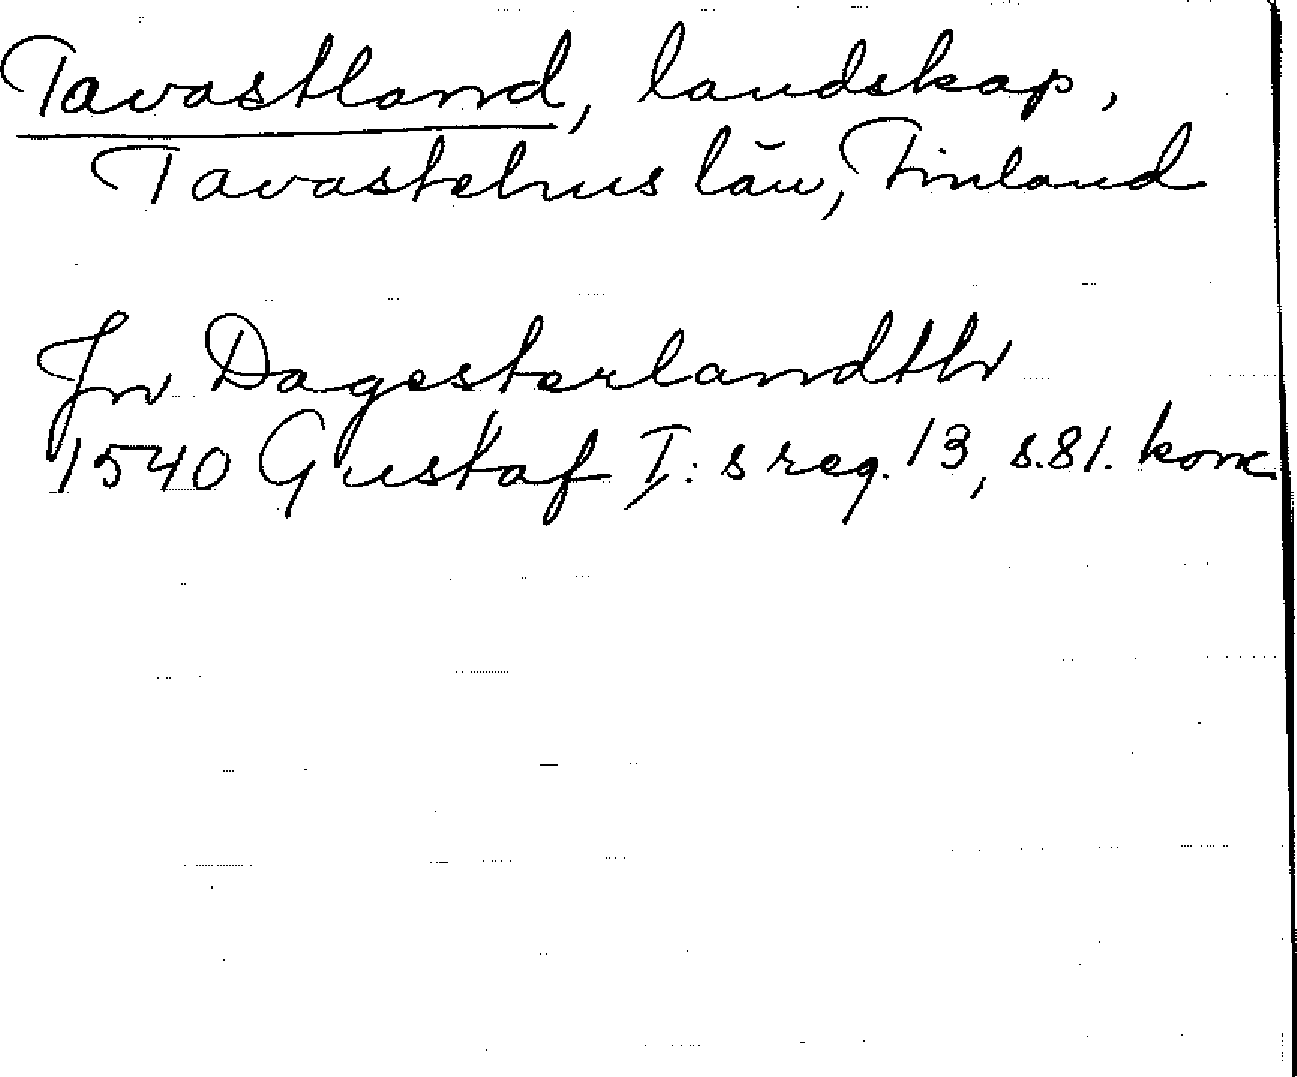 Tavastland, landskap,
Tavastehus län, Finland
Jn Dagesterlandthr
1540 Gustaf I:s reg. 13, s.81. konc